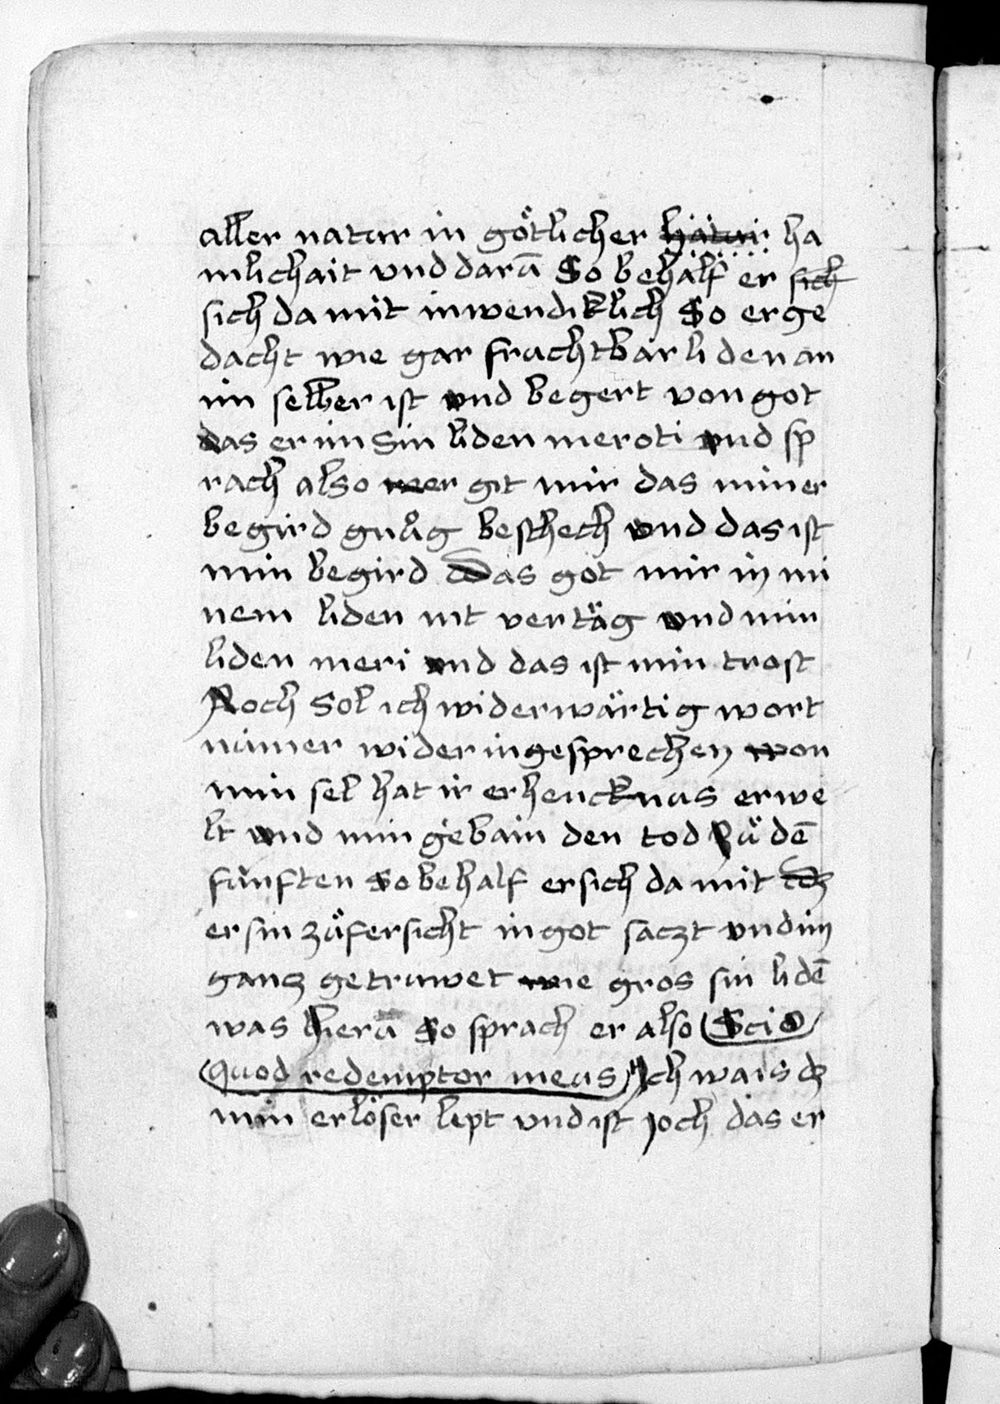 aller natur in götlicher hatur ha
mlichait vnd darā So behalf er sich
sich da mit inwendiklich So er ge
dacht wie gar fruchtbar liden an
im selber ist vnd begert von got
das er im Sin liden meroti vnd sp
rach also wer git mir das miner
begird gnůg beschech vnd das ist
min begird das got mir in mi
nem liden nit vertäg vnd min
liden meri vnd das ist min trost
Noch Sol ich widerwärtig wort
nimer wider in gesprechen won
min sel hat ir erhencknus erwe
lt vnd min gebain den tod Zů dē
fünften So behalf er sich da mit dz
er sin zůfersicht in got saczt vnd im
gancz getruwet wie gros sin lidē
was hierū So sprach er also Scio
Quod redemptor meus Ich wais dz
min erlöser lept vnd ist joch das er